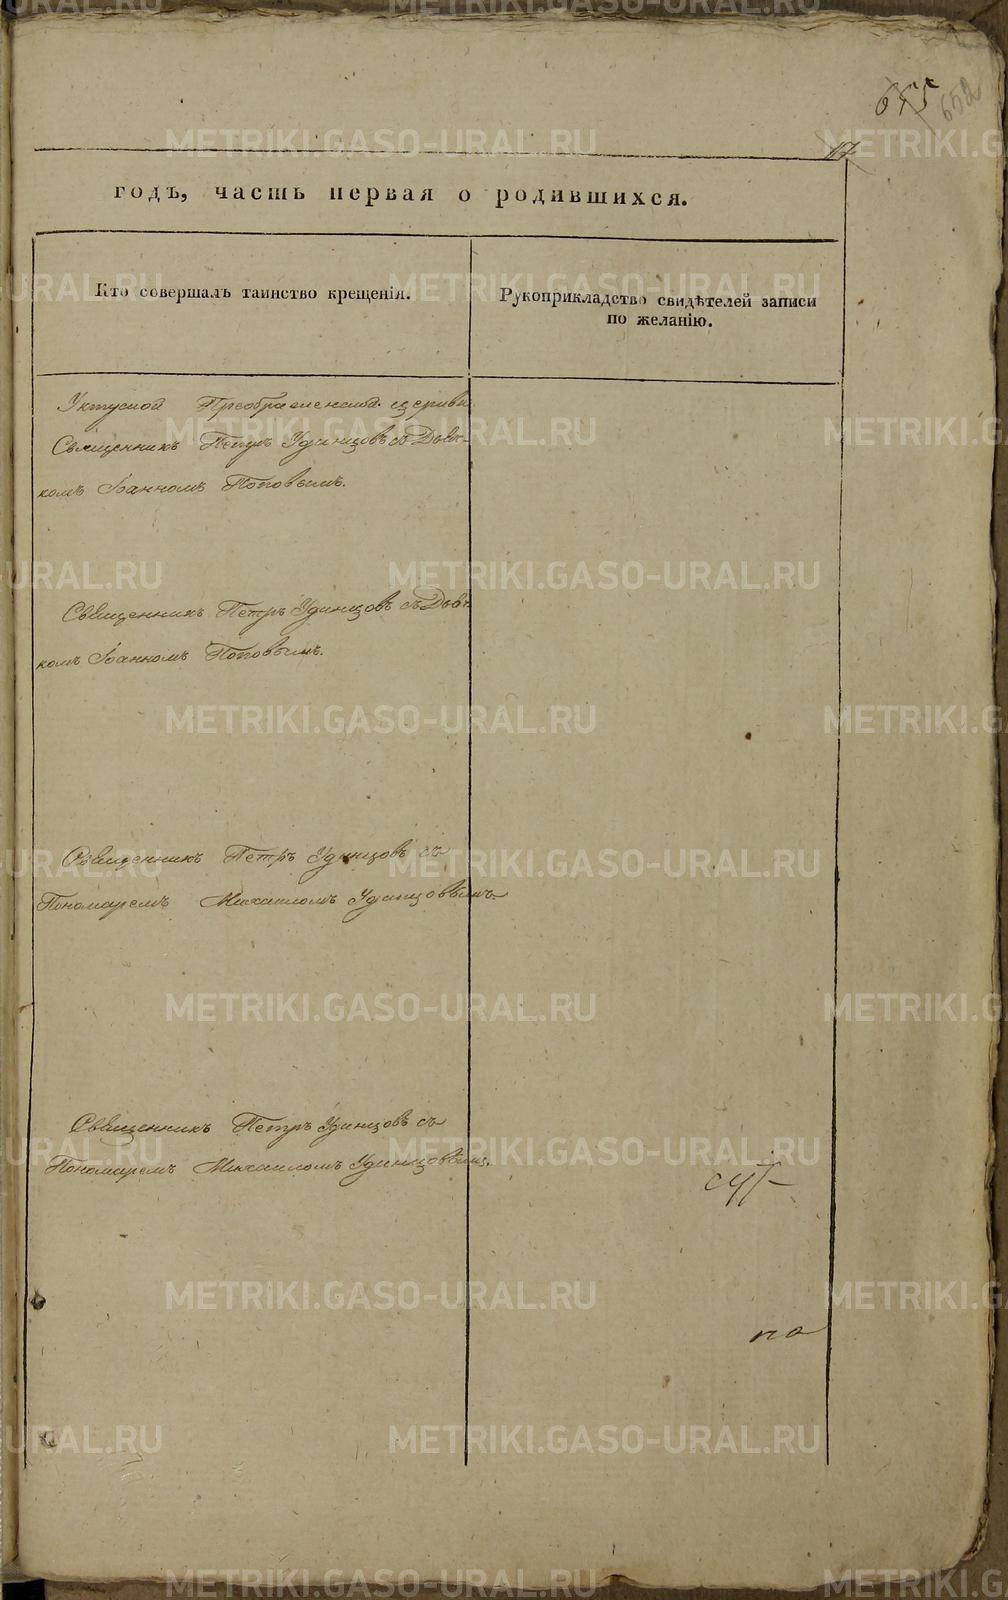 655 652
17
годъ, часть первая о родившихся.
Кто совершалъ таинство крещенія.
Рукоприкладство свидѣтелей записи
по желанію.
Уктуской Преображенской церкви
Священникъ Петръ Удинцовъ съ Дьяч-
комъ Іоанномъ Поповымъ.
Священникъ Петръ Удинцовъ съ Дьяч-
комъ Іоанномъ Поповымъ.
Священникъ Петръ Удинцовъ съ
Пономаремъ Михаиломъ Удинцовымъ.
Священникъ Петръ Удинцовъ съ
Пономаремъ Михаиломъ Удинцовымъ.
по
METRIKI.GASO-URAL.RU